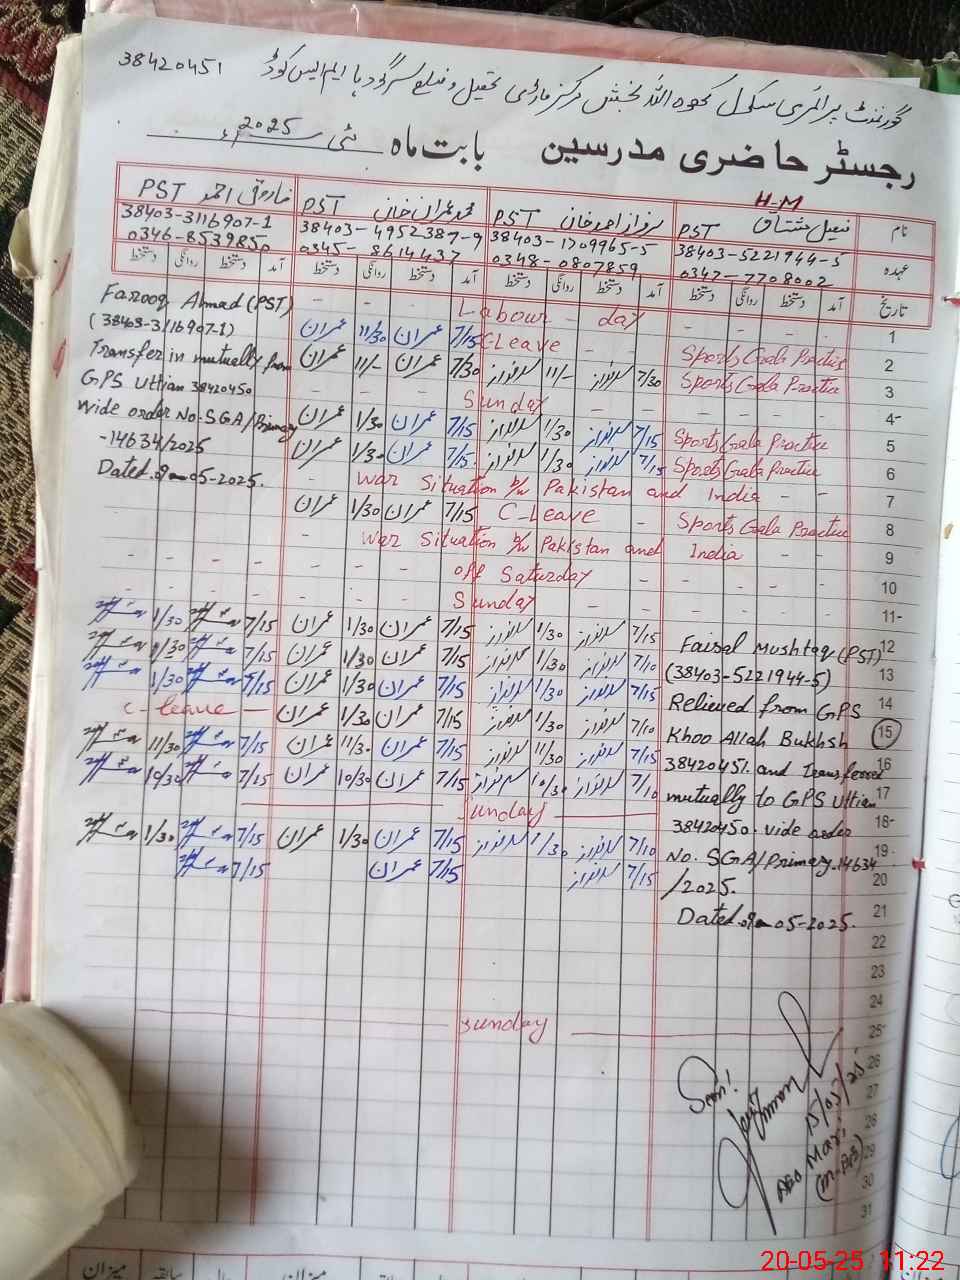 گورنمنٹ پرائمری سکول کھوہ اللہ بخش مرکز ماڑی تحصیل و ضلع سرگودہا ایم ایس کوڈ 38420451
رجسٹر حاضری مدرسین بابت ماہ مئی 2025ء
H-M
نام
PST
محمد عمران خان PST
فاروق احمد PST
سرفراز احمد خان PST
عہدہ
38403-5221944-5
38403-1709965-5
38403-4952387-9
38403-3116907-1
0347-7708002
0348-0807859
0345-8614437
0346-8539850
تاریخ آمد دستخط روانگی دستخط آمد دستخط روانگی دستخط آمد دستخط روانگی دستخط آمد دستخط روانگی دستخط
1 - - - Labour - day - - -
2 Sports Gala Practice C Leave - - 7/15 عمران 11/30 عمران
3 Sports Gala Practice 7/30 سرفراز 11/- سرفراز 7/30 عمران 11/- عمران
4- - - - Sunday - - -
5 Sports Gala Practice 7/15 سرفراز 1/30 سرفراز 7/15 عمران 1/30 عمران
6 Sports Gala Practice 7/15 سرفراز 1/30 سرفراز 7/15 عمران 1/30 عمران
7 - War Situation b/w Pakistan and India - -
8 Sports Gala Practice C-Leave - 7/15 عمران 1/30 عمران
9 - War Situation b/w Pakistan and India - -
10 - - - off Saturday - - -
11- - - - Sunday - - -
Farooq Ahmad (PST)
(38403-3116907-1)
Transfer in mutually from
GPS Uttian 38420450
Wide order No. SGA/Primary
-14634/2025
Dated. 9-05-2025.
12 7/15 سرفراز 1/30 سرفراز 7/15 عمران 1/30 عمران 7/15 1/30
13 7/10 سرفراز 1/30 سرفراز 7/15 عمران 1/30 عمران 7/15 1/30
14 7/15 سرفراز 1/30 سرفراز 7/15 عمران 1/30 عمران 7/15 1/30
15 7/10 سرفراز 1/30 سرفراز 7/15 عمران 1/30 عمران C-leave -
16 7/15 سرفراز 11/30 سرفراز 7/15 عمران 11/30 عمران 7/15 11/30
17 7/10 سرفراز 10/30 سرفراز 7/15 عمران 10/30 عمران 7/15 10/30
18- Sunday
19 7/10 سرفراز 1/30 سرفراز 7/15 عمران 1/30 عمران 7/15 1/30
20 7/15 سرفراز 7/15 عمران 7/15
21
22
23
24
25- Sunday
26
27
28
29
30
31
Faisal Mushtaq (PST)
(38403-5221944-5)
Relieved from GPS
Khoo Allah Bukhsh
38420451. and Transferred
mutually to GPS Uttian
38420450. vide order
No. SGA/Primary.14634
/2025.
Dated. 9-05-2025.
15/05/25
AEO Mari
میزان سابقہ حال میزان
20-05-25 11:22